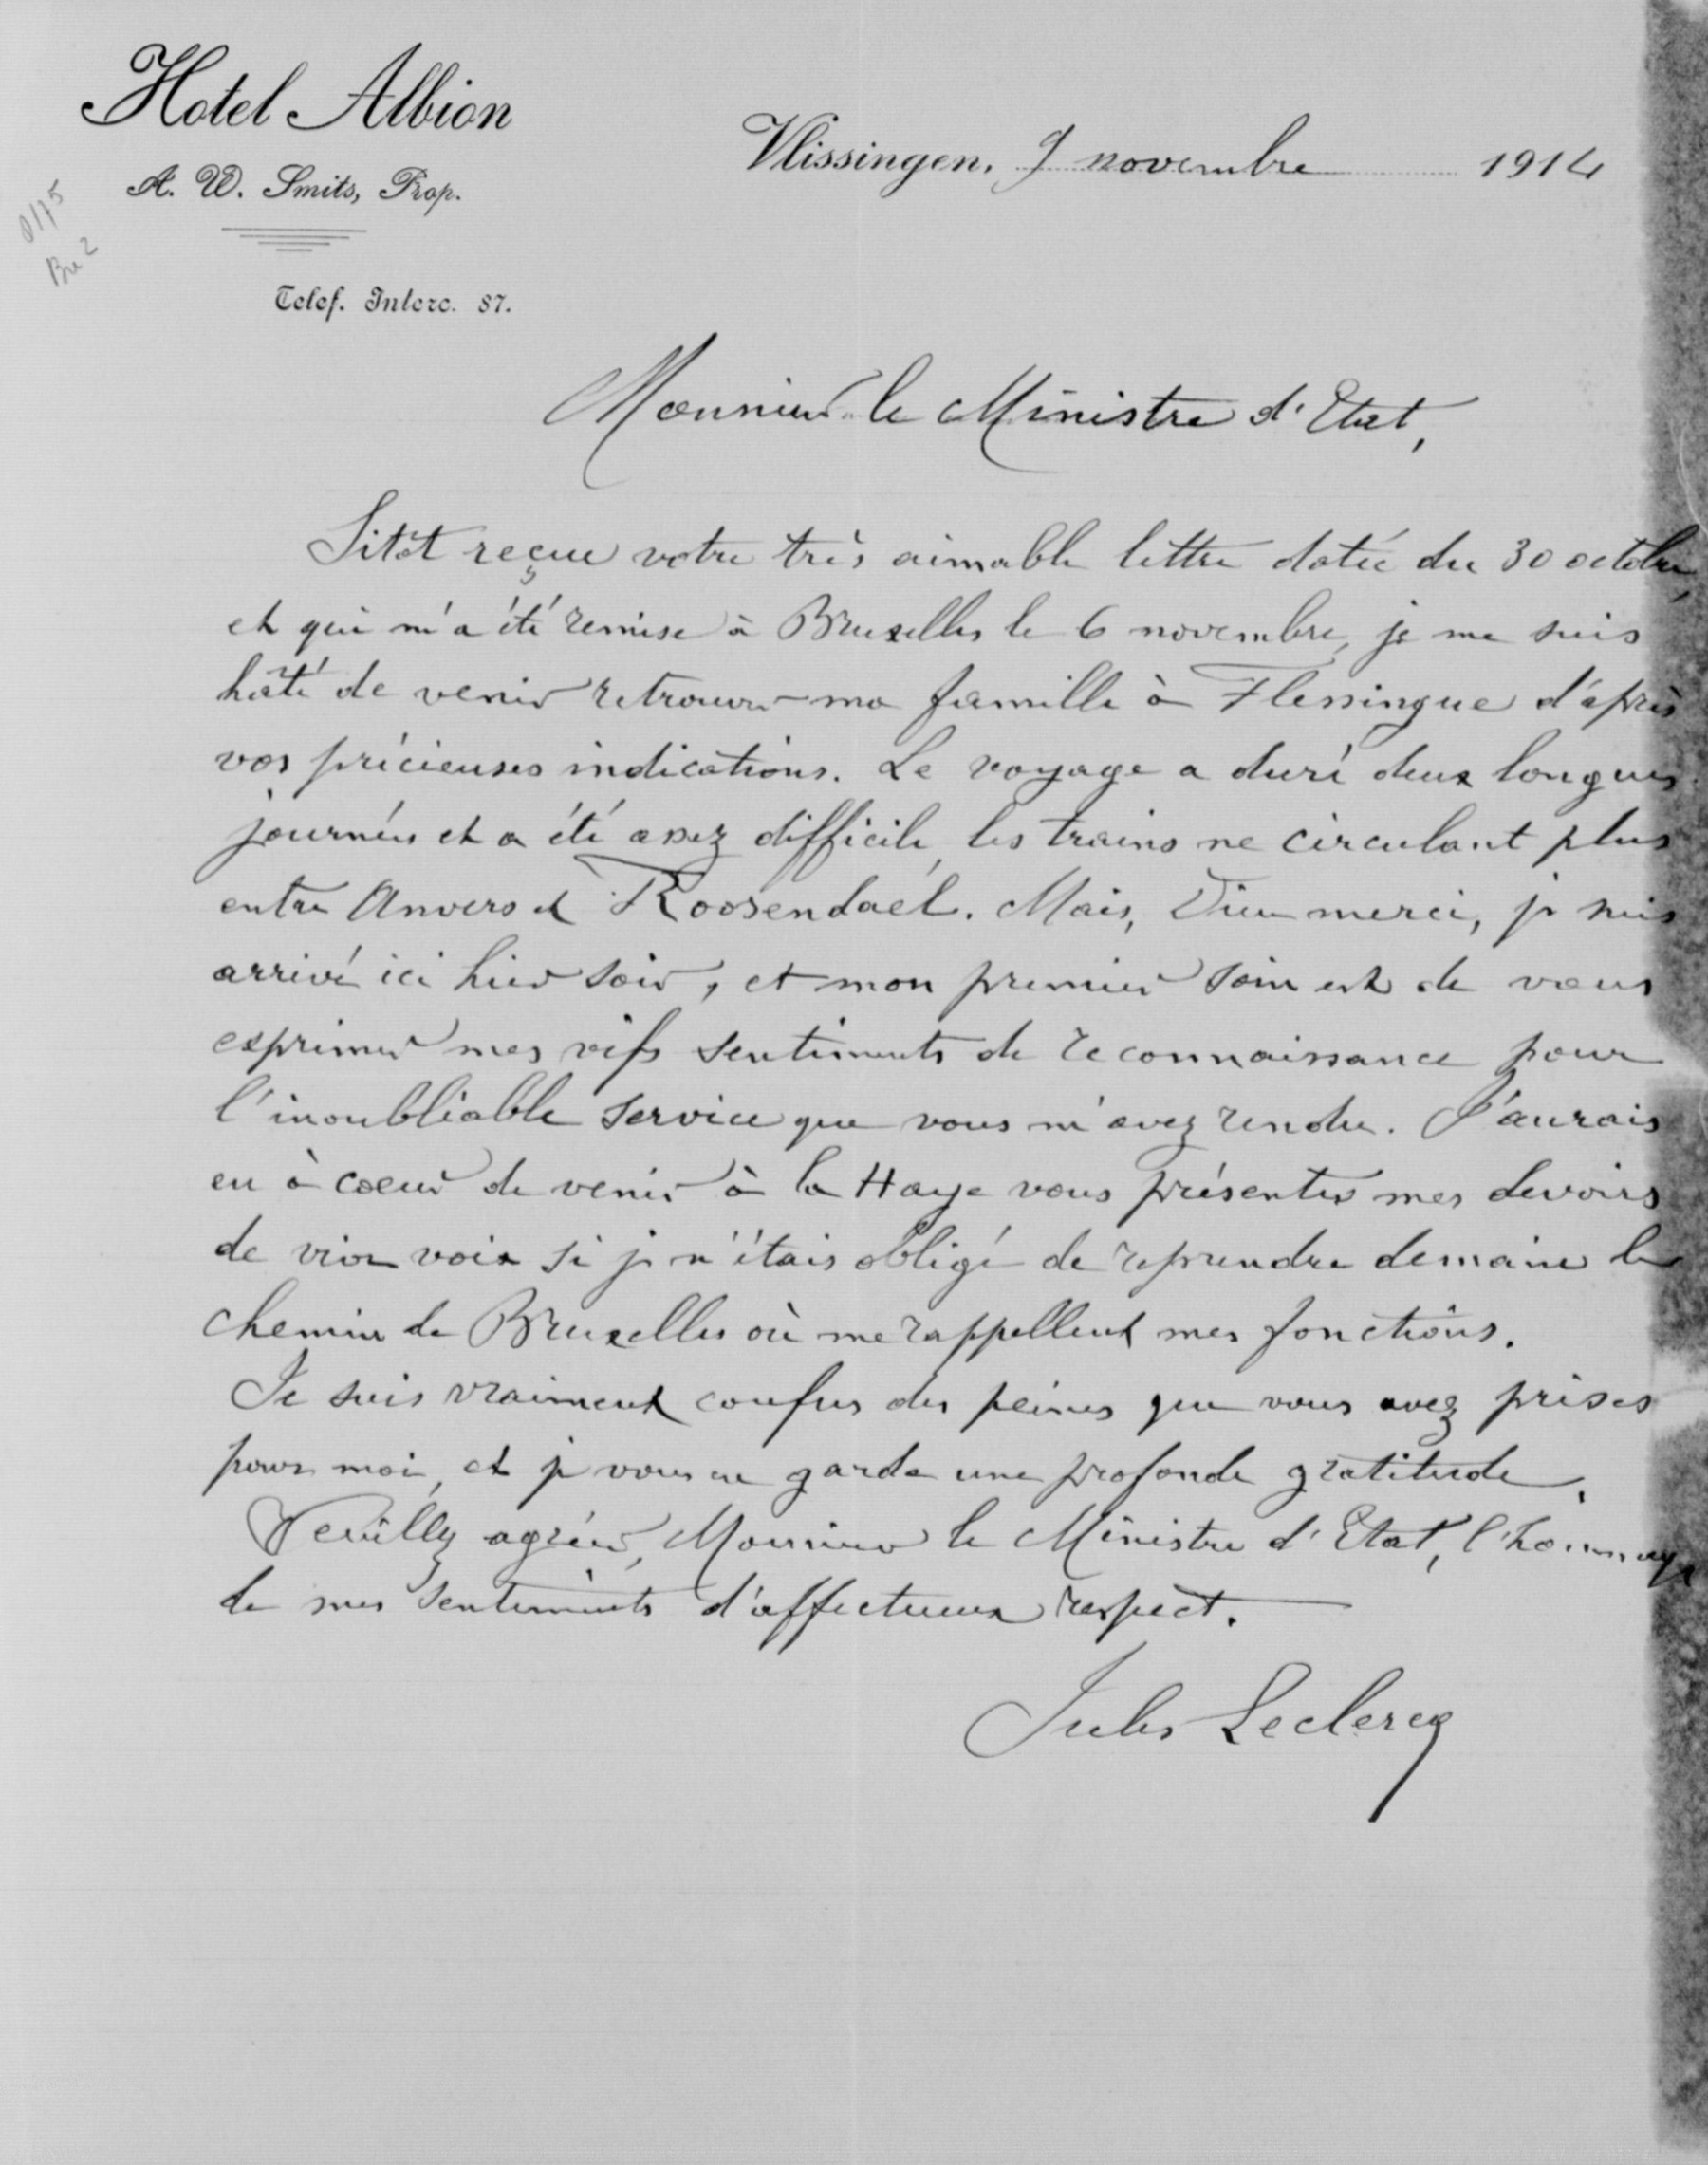 Hotel Albion
A. W. Smits, Prop.
Telef. Interc. 87.
Vlissingen, 9 novembre 1914
0/75
Bre 2
Monsieur le Ministre d'Etat,
Sitôt reçue votre très aimable lettre datée du 30 octobre,
et qui m'a été remise à Bruxelles le 6 novembre, je me suis
hâté de venir retrouver ma famille à Flessingue d'après
vos précieuses indications. Le voyage a duré deux longues
journées et a été assez difficile, les trains ne circulant plus
entre Anvers et Roosendael. Mais, Dieu merci, je suis
arrivé ici hier soir, et mon premier soin est de vous
exprimer mes vifs sentiments de reconnaissance pour
l'inoubliable service que vous m'avez rendu. J'aurais
eu à coeur de venir à la Haye vous présenter mes devoirs
de vive voix si je n'étais obligé de reprendre demain le
chemin de Bruxelles où me rappellent mes fonctions.
Je suis vraiment confus des peines que vous avez prises
pour moi, et je vous en garde une profonde gratitude.
Veuillez agréer, Monsieur le Ministre d'Etat, l'hommage
de mes sentiments d'affectueux respect.
Jules Leclercq